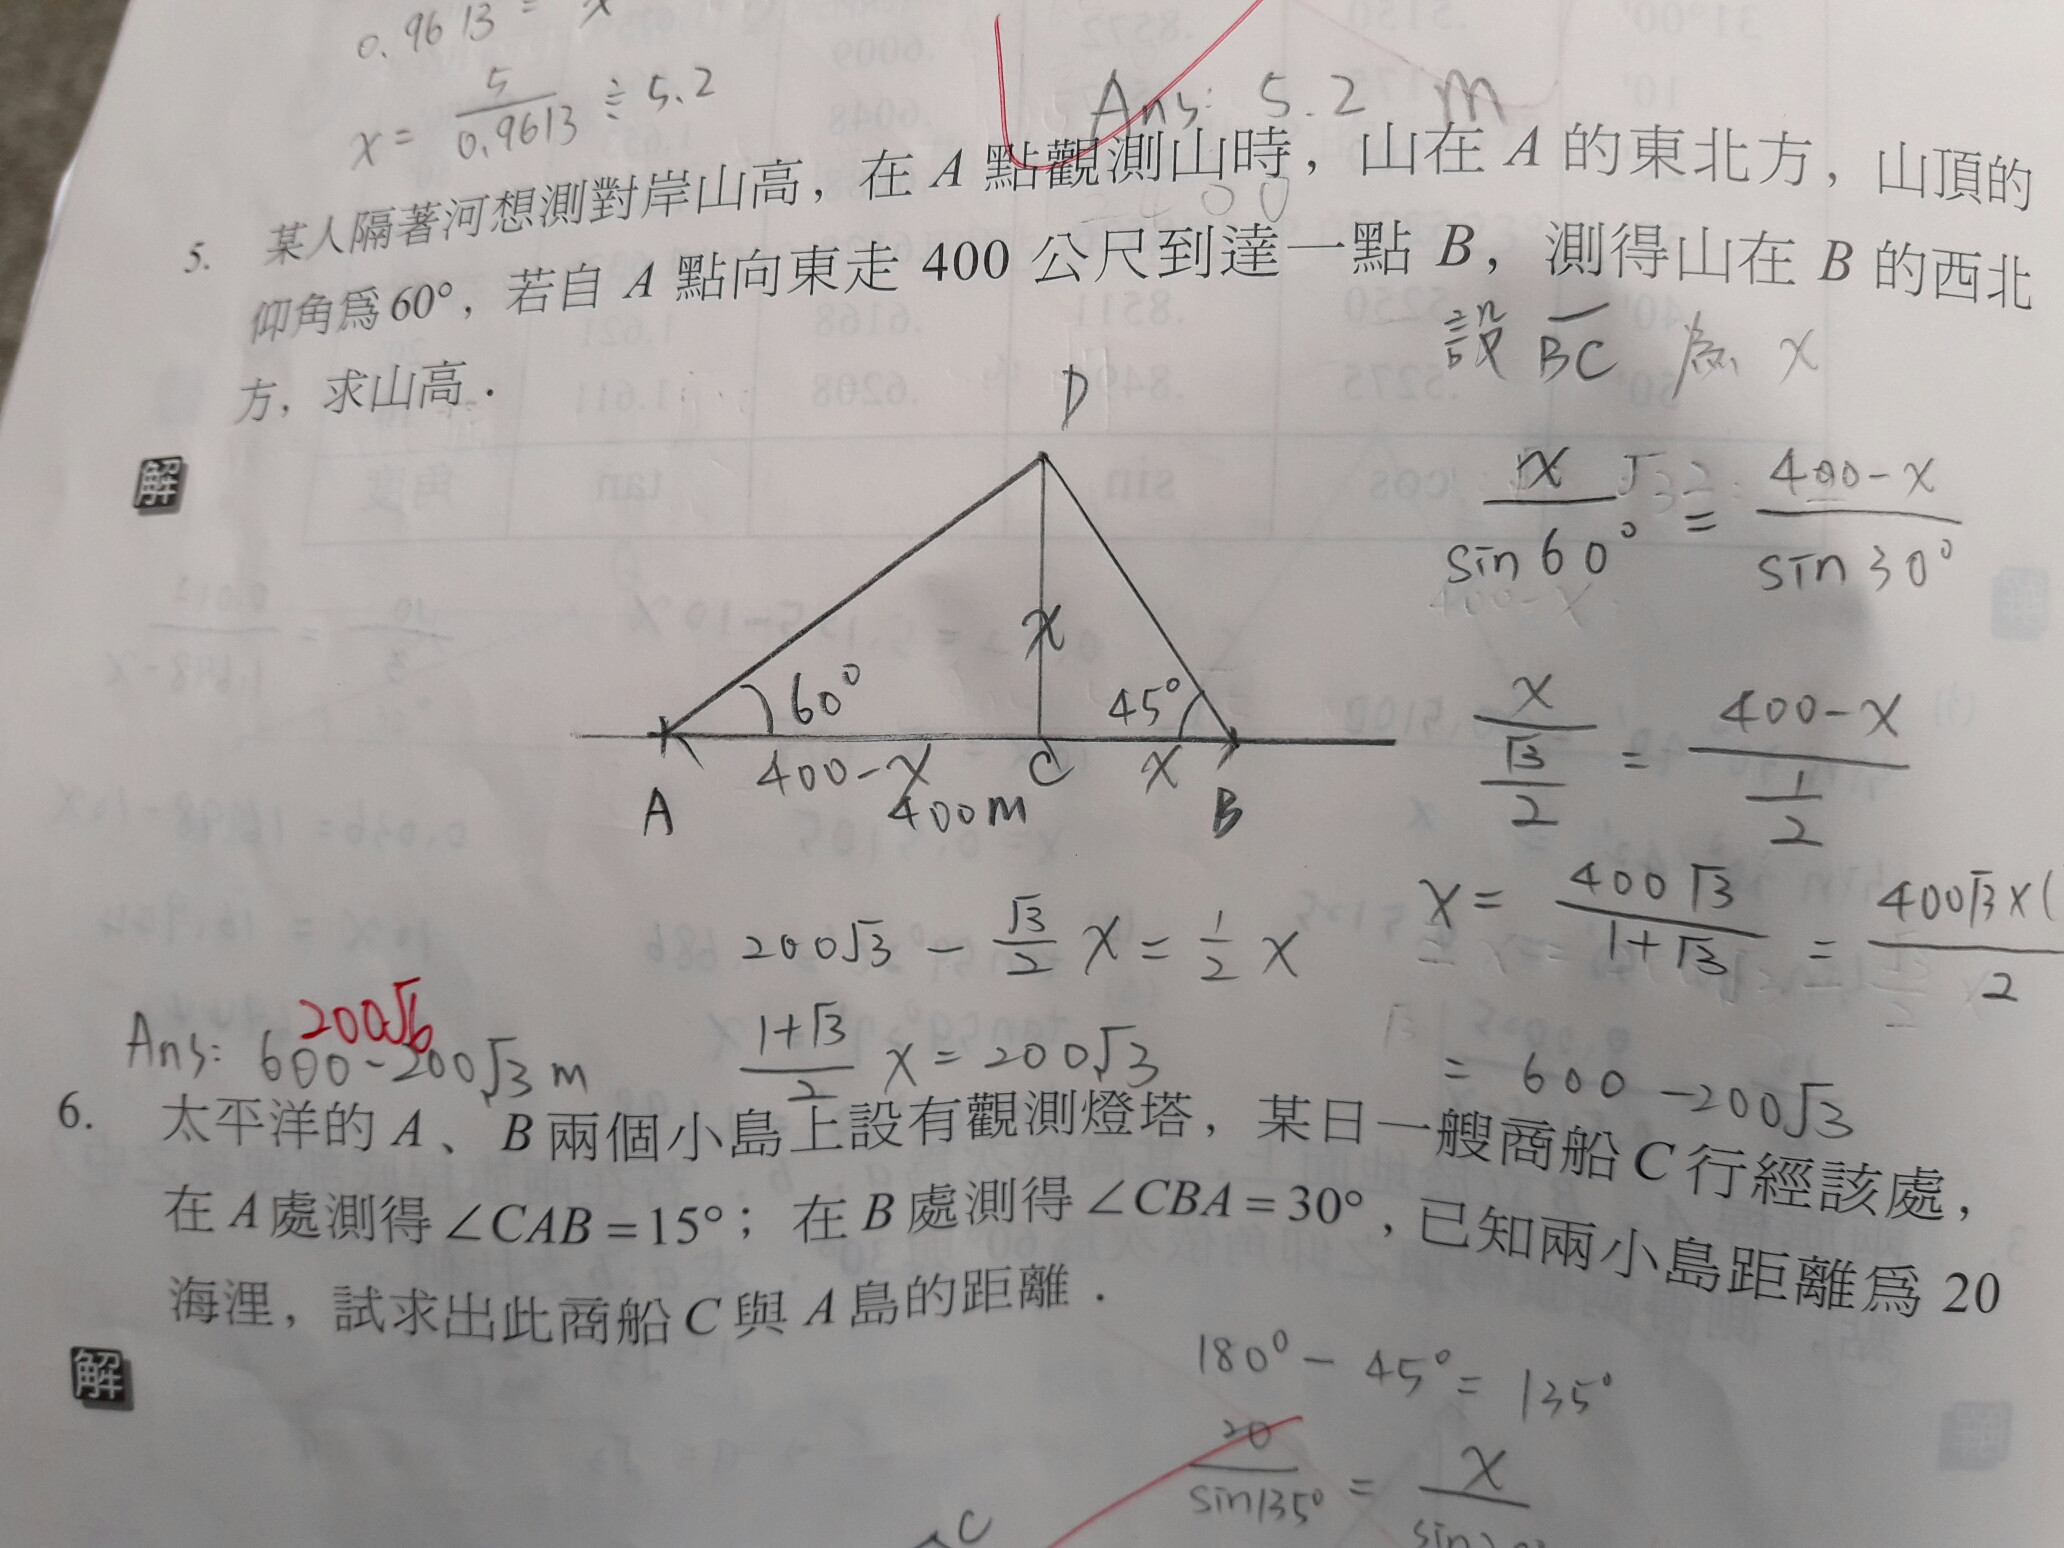 0.9613 = x
x = 5/0.9613 ≑ 5.2
Ans: 5.2 m
5. 某人隔著河想測對岸山高，在 A 點觀測山時，山在 A 的東北方，山頂的
仰角為 60°，若自 A 點向東走 400 公尺到達一點 B，測得山在 B 的西北
方，求山高．
設 BC 為 x
解
D
x
60°
45°
400-x
C
x
A
400m
B
x/sin60° = 400-x/sin30°
x/(√3/2) = 400-x/(1/2)
200√3 - √3/2 x = 1/2 x
1+√3/2 x = 200√3
x = 400√3/1+√3 = 400√3×(/2
= 600-200√3
200√6
Ans: 600-200√3 m
6. 太平洋的 A、B 兩個小島上設有觀測燈塔，某日一艘商船 C 行經該處，
在 A 處測得 ∠CAB=15°；在 B 處測得 ∠CBA=30°，已知兩小島距離為 20
海浬，試求出此商船 C 與 A 島的距離．
解
180°-45°=135°
20/sin135° = x/sin
C